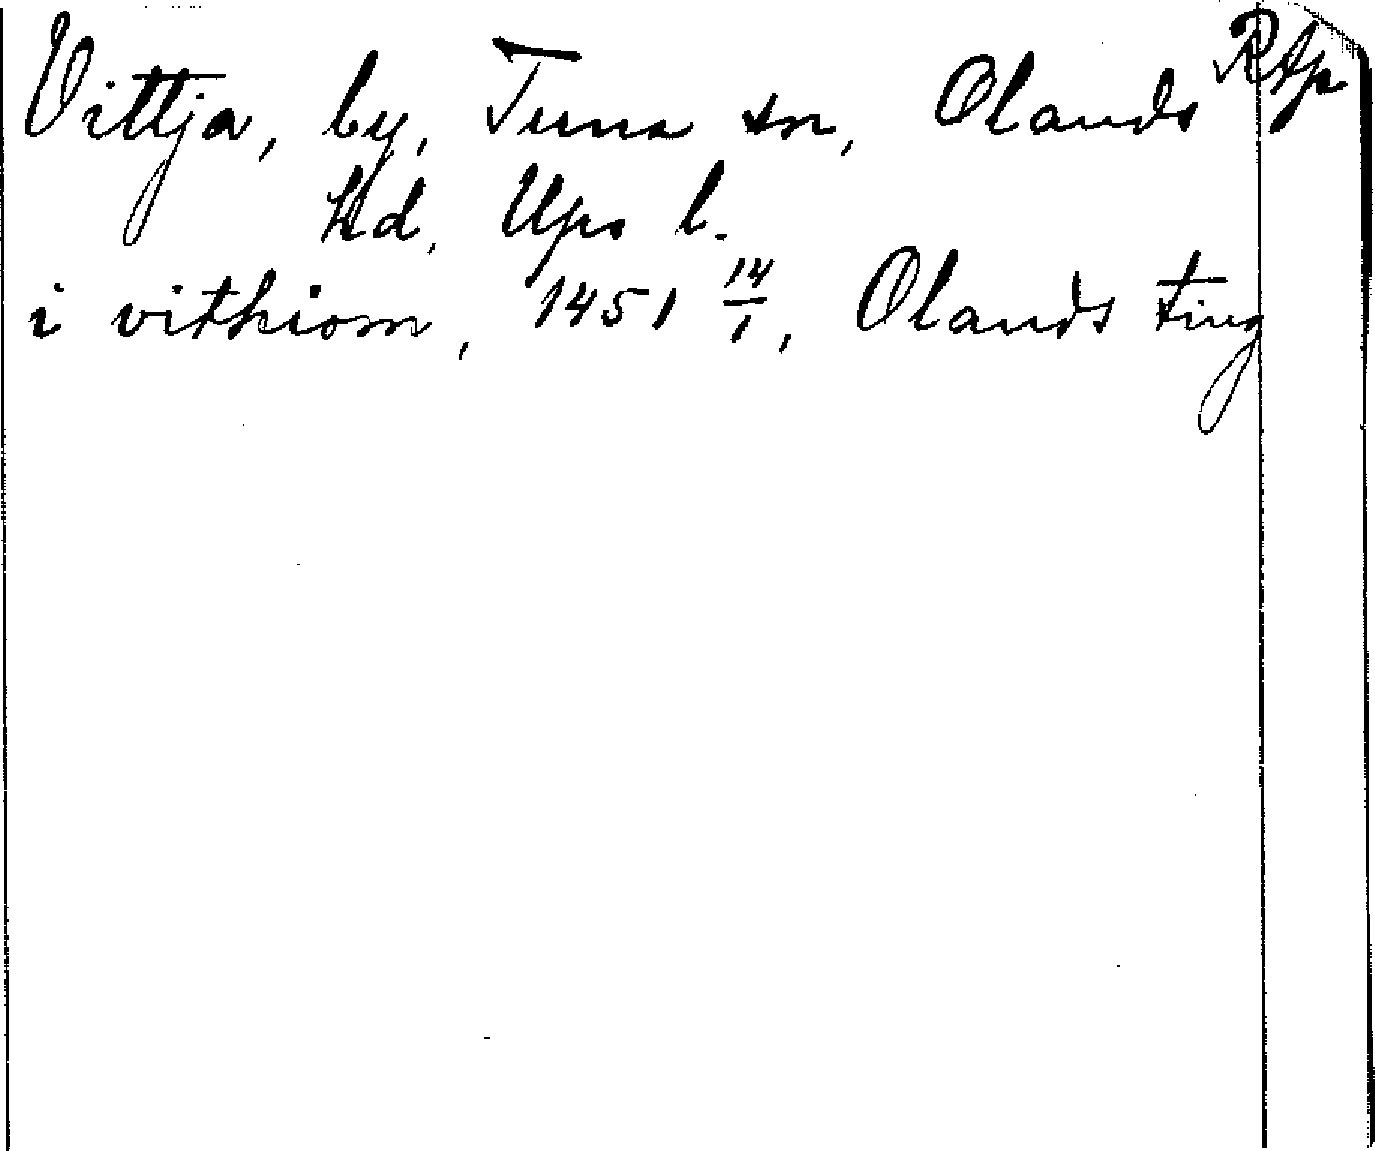 Vittja, by, Tuna sn, Olands Rtp
hd, Ups l.
i vithiom, 1451 14/1, Olands ting